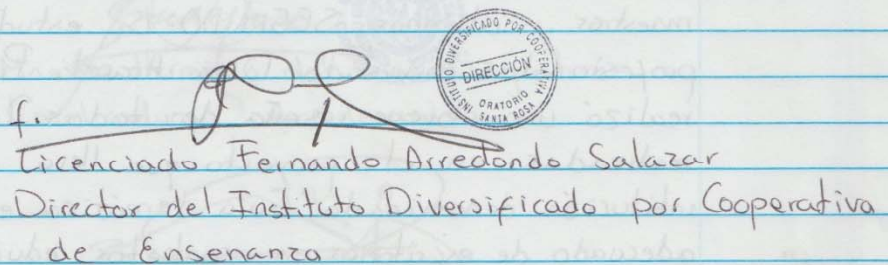 INSTITUTO DIVERSIFICADO POR COOPERATIVA
DIRECCIÓN
ORATORIO
SANTA ROSA
f.
Licenciado Fernando Arredondo Salazar
Director del Instituto Diversificado por Cooperativa
de Ensenanza